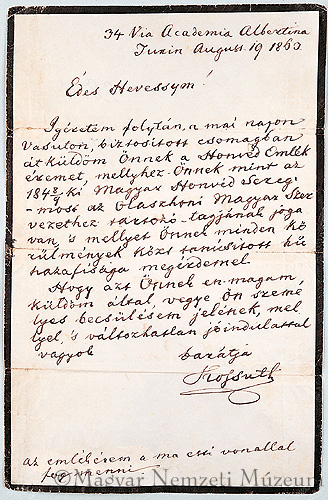 34 Via Academia Albertina
Turin August. 19 1863
Édes Hevessym!
Igéretem folytán, a mai napon
vasuton, biztositott csomagban
átküldöm Önnek a Honvéd Emlék
érmet, mellyhez Önnek mint az
1848/9 ki Magyar Honvéd Sereg
- most az Olaszhoni Magyar Szer
vezethez tartozó - tagjának joga
van, 's mellyet Önnek minden kö
rülmények közt tanusitott hű
hazafisága megérdemel.
Hogy azt Önnek en-magam,
küldöm által, vegye Ön szemé
lyes becsülésem jelének, mel
lyel, 's változhatlan jóindulattal
vagyok
barátja
Kossuth
az emlékérem a ma esti vonallal
fog menni.
© Magyar Nemzeti Múzeum